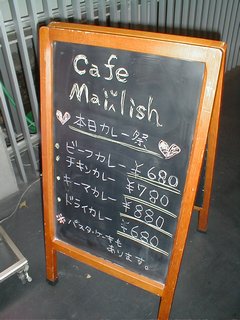 Cafe
Mailish
本日カレー祭
・ビーフカレー ¥680
・チキンカレー ¥780
・キーマカレー ¥880
・ドライカレー ¥680
※パスタ・ケーキも
あります。